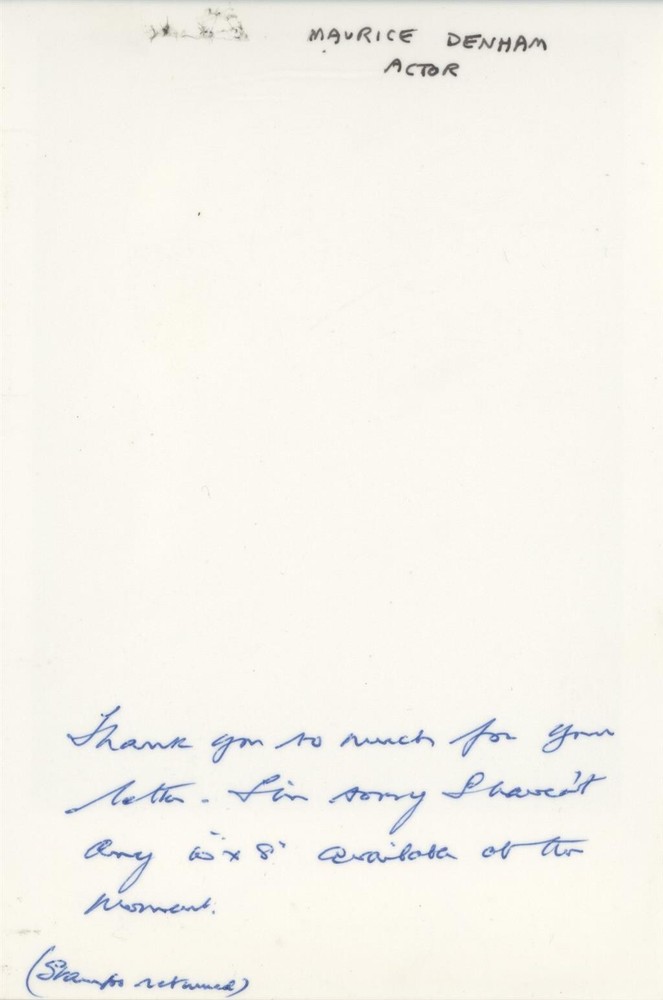 MAURICE DENHAM
ACTOR
Thank you so much for your
letter. I'm sorry I haven't
any 10" x 8" available at the
moment.
(Stamps returned)